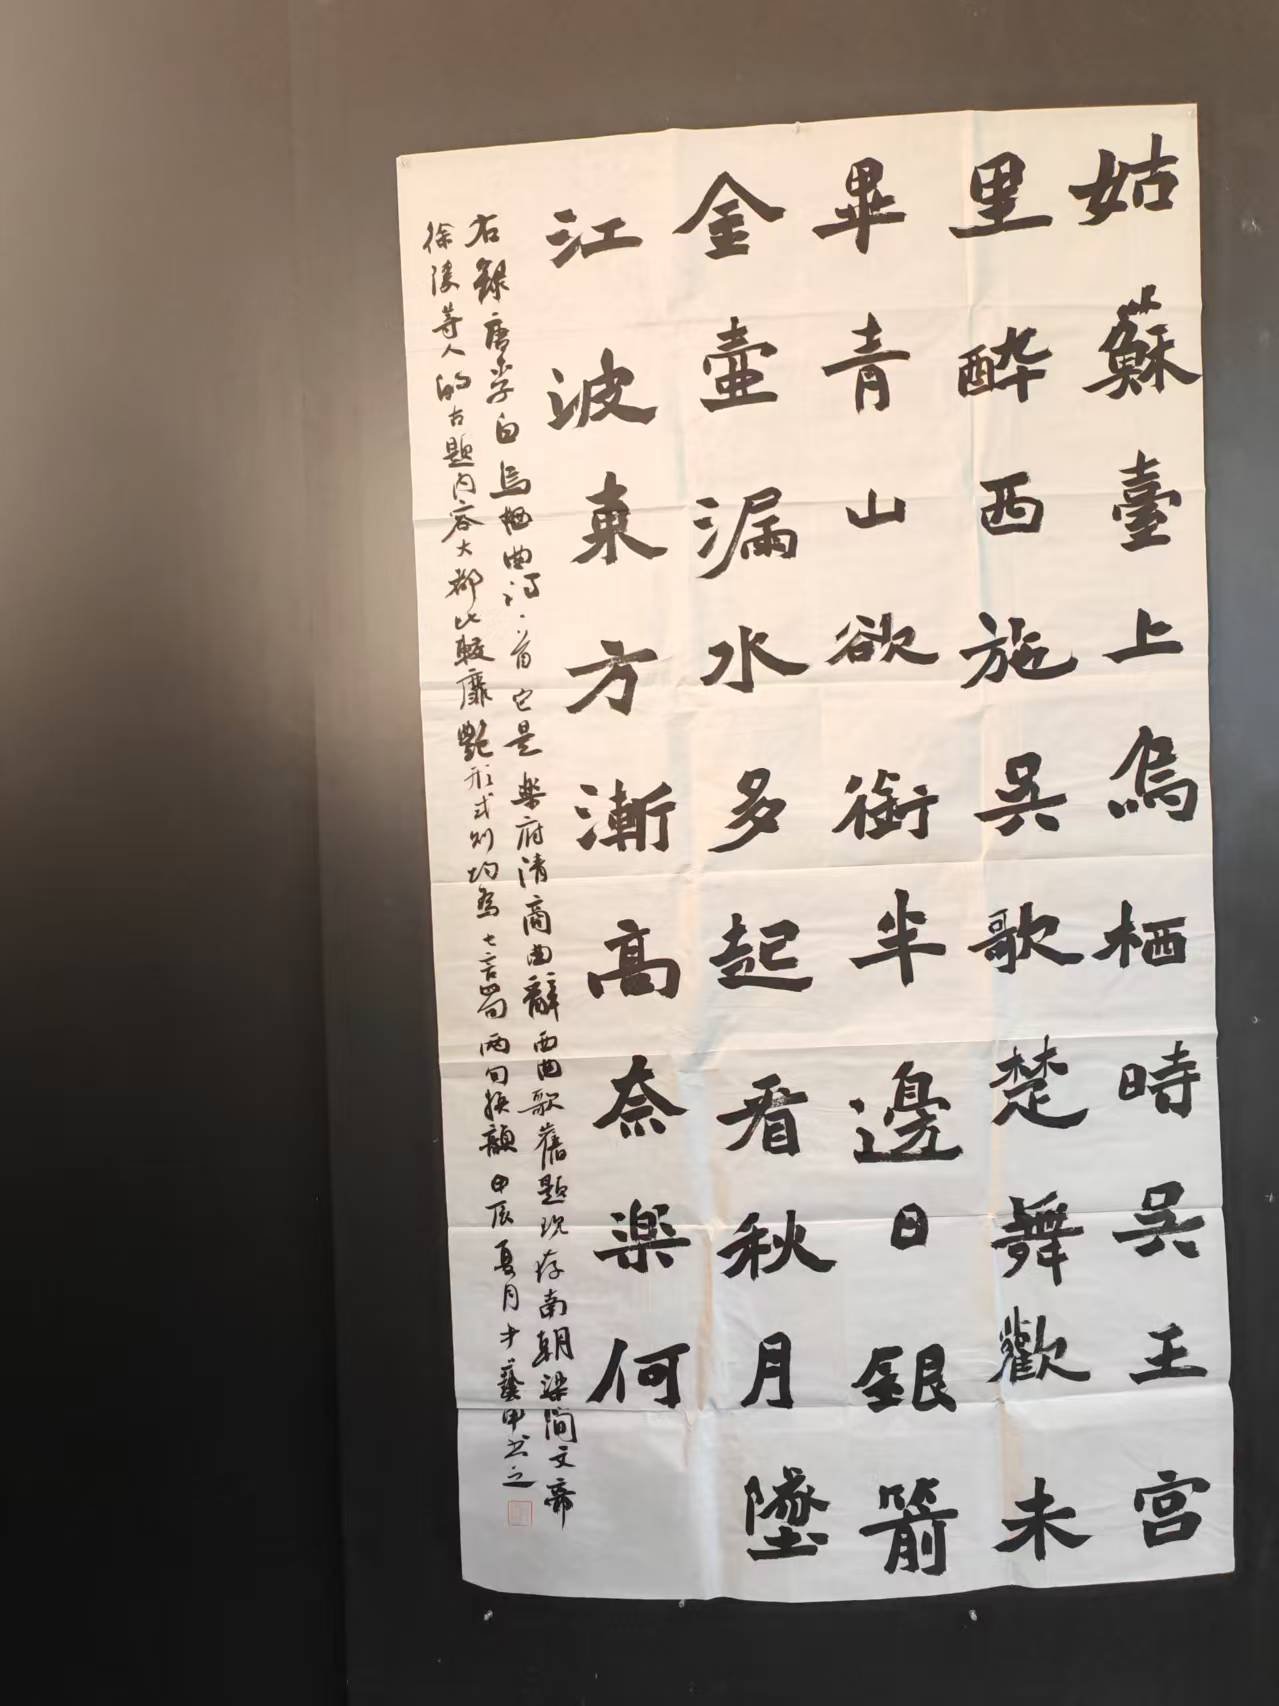 姑蘇臺上烏栖時吳王宫
里醉西施吳歌楚舞歡未
畢青山欲銜半邊日銀箭
金壷漏水多起看秋月墜
江波東方漸高奈楽何
右錄唐李白烏栖曲詩一首它是楽府清商曲辭西曲歌舊題現存南朝梁簡文帝
徐陵等人的古題内容大都比較靡艷形式則均為七言四句兩句换韻甲辰夏月才藝甲书之